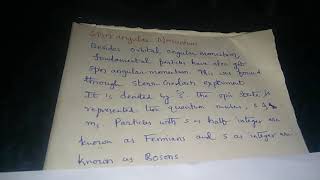 Spin angular Momentum
Besides orbital angular momentum,
fundamental particles have also got
spin angular momentum. This was found
through Stern Gerlach experiment
It is denoted by S. the spin state is
represented two quantum numbers, s &
ms. Particles with s as half integer are
known as Fermions and s as integer are
known as Bosons